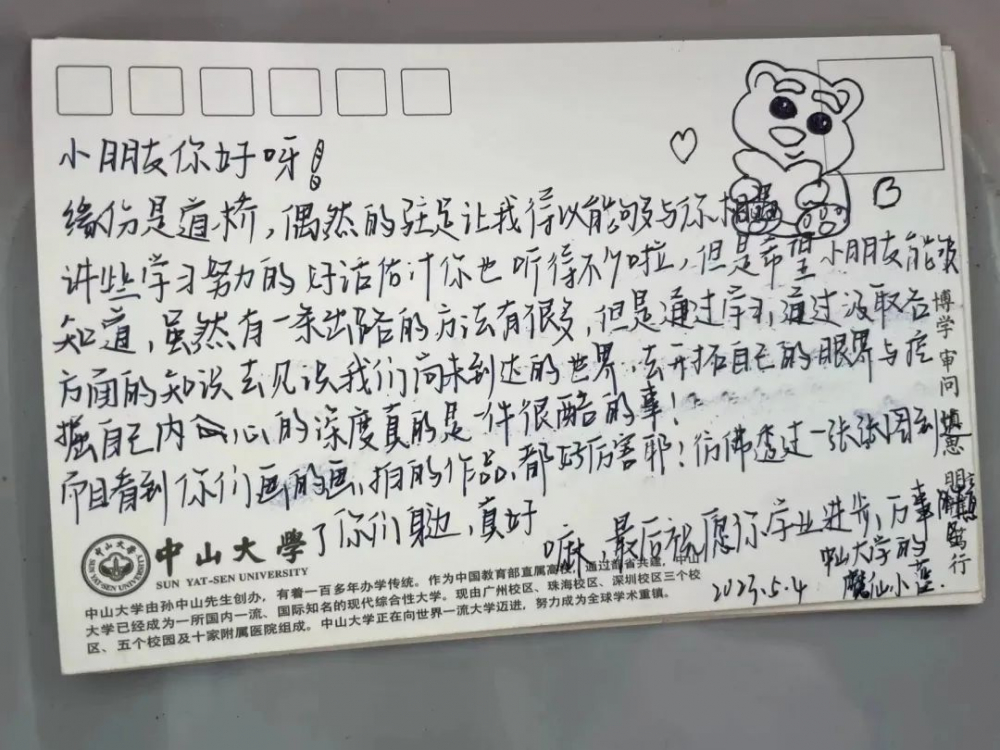 小朋友你好呀!
缘份是道桥,偶然的驻足让我得以能够与你相遇
讲些学习努力的好话估计你也听得不少啦,但是希望小朋友能够
知道,虽然有一条出路的方法有很多,但是通过学习,通过汲取各
方面的知识去见识我们尚未到达的世界,去开拓自己的眼界与挖
掘自己内心的深度真的是一件很酷的事!
而且看到你们画的画,拍的作品,都好厉害耶!仿佛透过一张张图到
了你们身边,真好
嘛,最后祝愿你学业进步,万事
中山大学的
魔仙小蓝
2023.5.4
博学 审问 慎思 明辨 笃行
中山大學
SUN YAT-SEN UNIVERSITY
中山大学由孙中山先生创办,有着一百多年办学传统。作为中国教育部直属高校,通过部省共建,中山
大学已经成为一所国内一流、国际知名的现代综合性大学。现由广州校区、珠海校区、深圳校区三个校
区、五个校园及十家附属医院组成。中山大学正在向世界一流大学迈进,努力成为全球学术重镇。